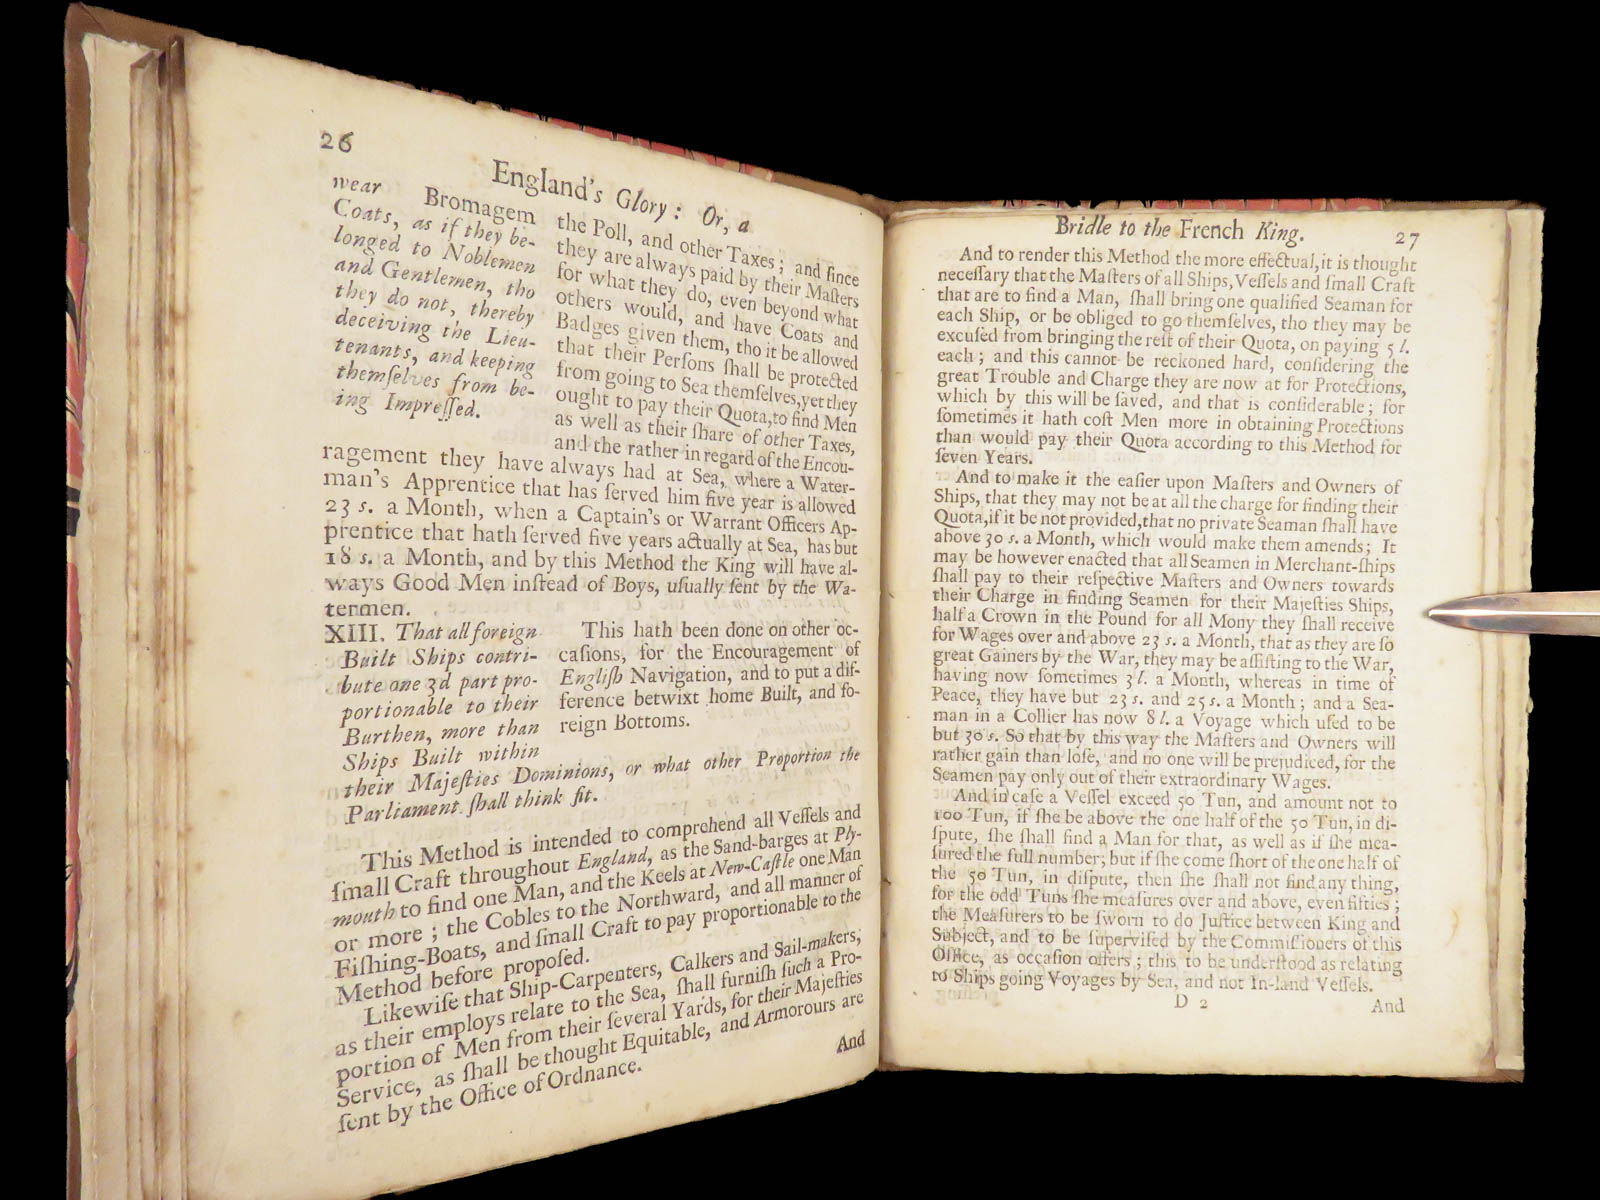 26
England's Glory: Or, a
wear Bromagem
Coats, as if they be-
longed to Noblemen
and Gentlemen, tho
they do not, thereby
deceiving the Lieu-
tenants, and keeping
themſelves from be-
ing Impreſſed.
the Poll, and other Taxes; and ſince
they are always paid by their Maſters
for what they do, even beyond what
others would, and have Coats and
Badges given them, tho it be allowed
that their Perſons ſhall be protected
from going to Sea themſelves, yet they
ought to pay their Quota, to find Men
as well as their ſhare of other Taxes,
and the rather in regard of the Encou-
ragement they have always had at Sea, where a Water-
man's Apprentice that has ſerved him five year is allowed
23 s. a Month, when a Captain's or Warrant Officers Ap-
prentice that hath ſerved five years actually at Sea, has but
18 s. a Month, and by this Method the King will have al-
ways Good Men inſtead of Boys, uſually ſent by the Wa-
termen.
XIII. That all foreign
Built Ships contri-
bute one 3d part pro-
portionable to their
Burthen, more than
Ships Built within
their Majeſties Dominions, or what other Proportion the
Parliament ſhall think fit.
This hath been done on other oc-
caſions, for the Encouragement of
Engliſh Navigation, and to put a dif-
ference betwixt home Built, and fo-
reign Bottoms.
This Method is intended to comprehend all Veſſels and
ſmall Craft throughout England, as the Sand-barges at Ply-
mouth to find one Man, and the Keels at New-Caſtle one Man
or more; the Cobles to the Northward, and all manner of
Fiſhing-Boats, and ſmall Craft to pay proportionable to the
Method before propoſed.
Likewiſe that Ship-Carpenters, Calkers and Sail-makers,
as their employs relate to the Sea, ſhall furniſh ſuch a Pro-
portion of Men from their ſeveral Yards, for their Majeſties
Service, as ſhall be thought Equitable, and Armorours are
ſent by the Office of Ordnance.
And
Bridle to the French King.
27
And to render this Method the more effectual, it is thought
neceſſary that the Maſters of all Ships, Veſſels and ſmall Craft
that are to find a Man, ſhall bring one qualified Seaman for
each Ship, or be obliged to go themſelves, tho they may be
excuſed from bringing the reſt of their Quota, on paying 5 l.
each; and this cannot be reckoned hard, conſidering the
great Trouble and Charge they are now at for Protections,
which by this will be ſaved, and that is conſiderable; for
ſometimes it hath coſt Men more in obtaining Protections
than would pay their Quota according to this Method for
ſeven Years.
And to make it the eaſier upon Maſters and Owners of
Ships, that they may not be at all the charge for finding their
Quota, if it be not provided, that no private Seaman ſhall have
above 30 s. a Month, which would make them amends; It
may be however enacted that all Seamen in Merchant-ſhips
ſhall pay to their reſpective Maſters and Owners towards
their Charge in finding Seamen for their Majeſties Ships,
half a Crown in the Pound for all Mony they ſhall receive
for Wages over and above 23 s. a Month, that as they are ſo
great Gainers by the War, they may be aſſiſting to the War,
having now ſometimes 3 l. a Month, whereas in time of
Peace, they have but 23 s. and 25 s. a Month; and a Sea-
man in a Collier has now 8 l. a Voyage which uſed to be
but 30 s. So that by this way the Maſters and Owners will
rather gain than loſe, and no one will be prejudiced, for the
Seamen pay only out of their extraordinary Wages.
And in caſe a Veſſel exceed 50 Tun, and amount not to
100 Tun, if ſhe be above the one half of the 50 Tun, in di-
ſpute, ſhe ſhall find a Man for that, as well as if ſhe mea-
ſured the full number; but if ſhe come ſhort of the one half of
the 50 Tun, in diſpute, then ſhe ſhall not find any thing,
for the odd Tuns ſhe meaſures over and above, even fifties;
the Meaſurers to be ſworn to do Juſtice between King and
Subject, and to be ſuperviſed by the Commiſſioners of this
Office, as occaſion offers; this to be underſtood as relating
to Ships going Voyages by Sea, and not In-land Veſſels.
D 2
And